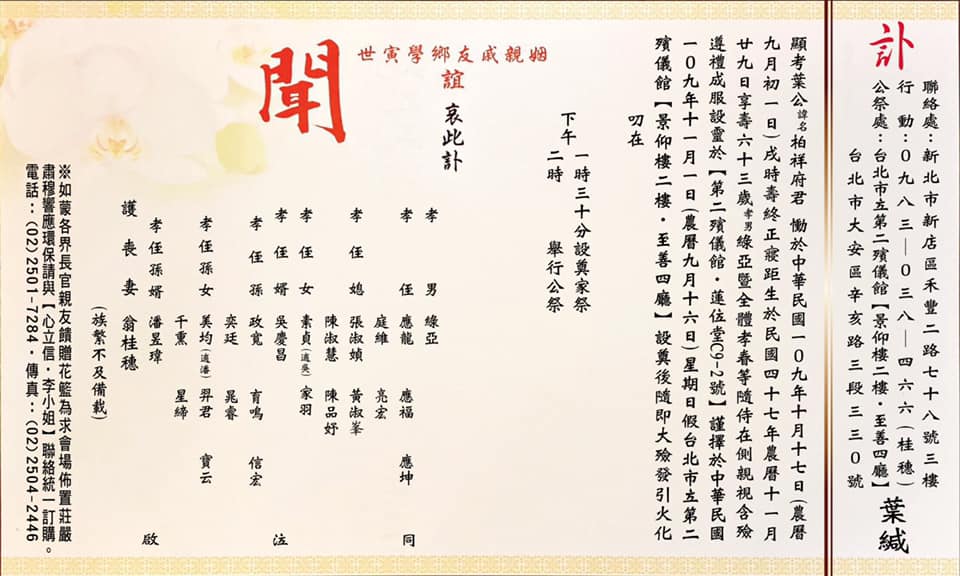 訃
聯絡處：新北市新店區禾豐二路七十八號三樓
行動：０九八三—０三八—四六六(桂穗)
公祭處：台北市立第二殯儀館【景仰樓二樓·至善四廳】
台北市大安區辛亥路三段三三０號
葉緘
顯考葉公諱名柏祥府君 慟於中華民國一０九年十月十七日(農曆
九月初一日)戌時壽終正寢距生於民國四十七年農曆十一月
廿九日享壽六十三歲孝男綠亞暨全體孝眷等隨侍在側親視含殮
遵禮成服設靈於【第二殯儀館·蓮位堂C9-2號】謹擇於中華民國
一０九年十一月一日(農曆九月十六日)星期日假台北市立第二
殯儀館【景仰樓二樓·至善四廳】設奠後隨即大殮發引火化
叨在
一時三十分設奠家祭
下午
二時 舉行公祭
世寅學鄉友戚親姻
誼 哀此訃
聞
孝男 綠亞
孝侄 應龍 應福 應坤 同
庭維 亮宏
孝侄媳 張淑媜 黃淑峯
陳淑慧 陳品妤
孝侄女 素貞(適吳) 家羽
孝侄婿 吳慶昌 泣
孝侄孫 政寬 育鳴 信宏
奕廷 晁睿
孝侄孫女 美均(適潘) 羿君 寶云
千熏 星締
孝侄孫婿 潘昱璋 啟
護喪妻 翁桂穗
(族繁不及備載)
※如蒙各界長官親友饋贈花籃為求會場佈置莊嚴
肅穆響應環保請與【心立信·李小姐】聯絡統一訂購。
電話：(02)2501-7284·傳真：(02)2504-2446